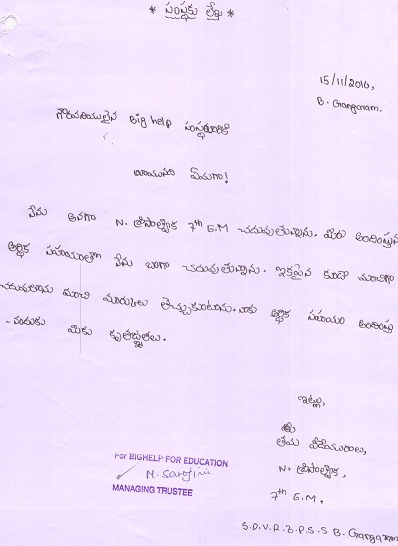 * సంస్థకు లేఖ *
15/11/2016,
B. Gangaram.
గౌరవనీయులైన Big help సంస్థవారికి
వ్రాయునది ఏమనగా!
నేను అనగా N. 7th E.M చదువుతున్నాను. మీరు అందిస్తున్న
ఆర్థిక సహాయంతో నేను బాగా చదువుతున్నాను. ఇకపైన కూడా మంచిగా
చదువుతాను మంచి మార్కులు తెచ్చుకుంటాను. నాకు ఆర్థిక సహాయం అందిస్తు
- నందుకు మీకు కృతజ్ఞతలు.
ఇట్లు,
తమ విధేయురాలు,
N.
7th E.M,
S.D.V.R.Z.P.S.S B. Gangaram
For BIGHELP FOR EDUCATION
M. Sarojini
MANAGING TRUSTEE